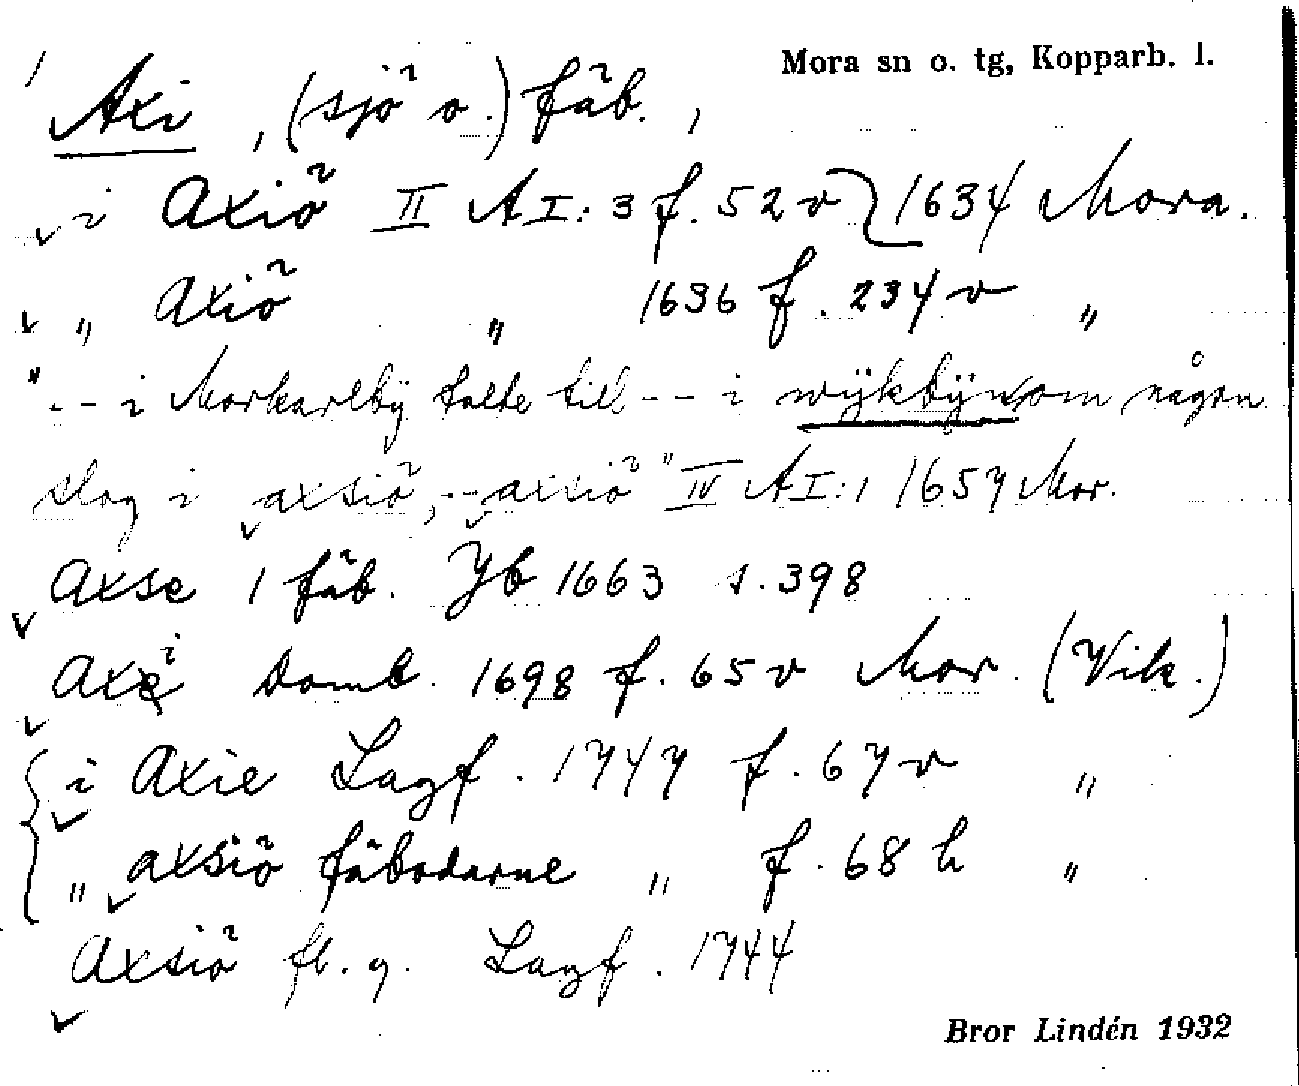 Mora sn o. tg, Kopparb. l.
Axi, (sjö o.) fäb.,
i Axiö II AI:3 f. 52 v } 1634 Mora.
„ Axiö „ 1636 f. 234 v „
"-- i Morkarlbÿ talte till -- i wÿkbÿn som någon
slog i axsiö, -- axsiö" IV AI:1 1657 Mor.
Axse 1 fäb. Jb 1663 s. 398
Axi Domb. 1698 f. 65 v Mor. (Vik.)
i Axie Lagf. 1747 f. 67 v „
„ axsiö fäbodarne „ f. 68 h „
Axsiö fl. g. Lagf. 1744
Bror Lindén 1932